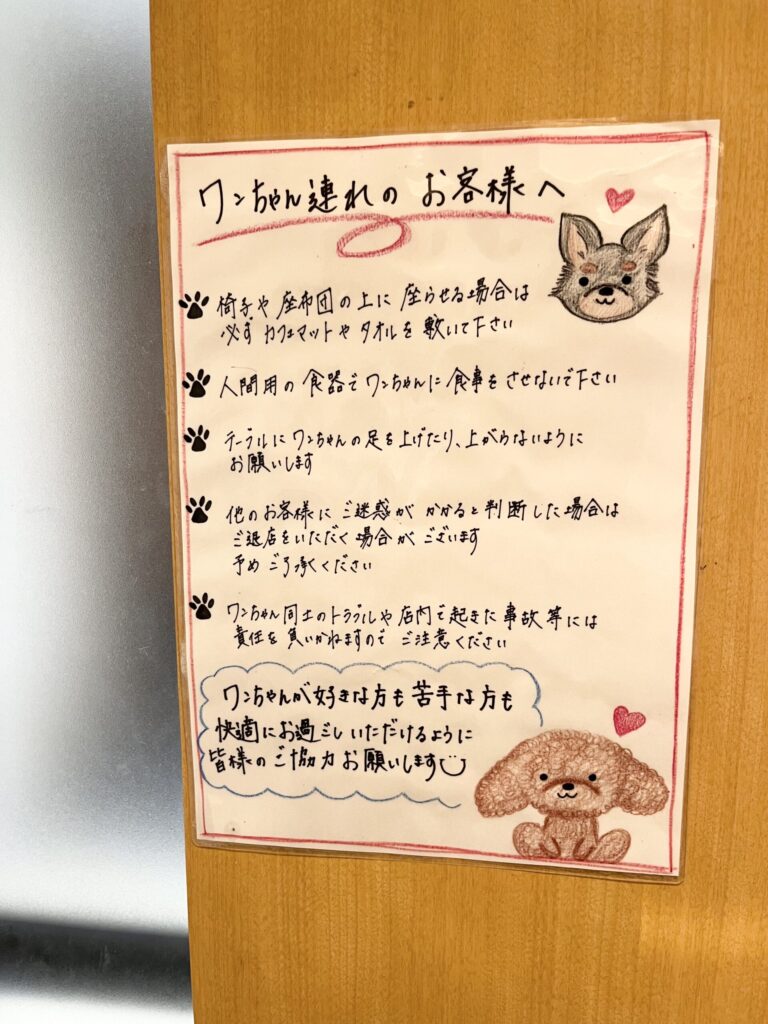 ワンちゃん連れの お客様へ
椅子や座布団の上に 座らせる場合は
必ず カフェマットやタオルを 敷いて下さい
人間用の 食器でワンちゃんに 食事をさせないで下さい
テーブルにワンちゃんの足を上げたり、上がらないように
お願いします
他のお客様に ご迷惑が かかると判断した場合は
ご退店をいただく場合が ございます
予め ご了承ください
ワンちゃん同士のトラブルや店内で起きた事故等には
責任を負いかねますので ご注意ください
ワンちゃんが好きな方も苦手な方も
快適にお過ごしいただけるように
皆様のご協力お願いします